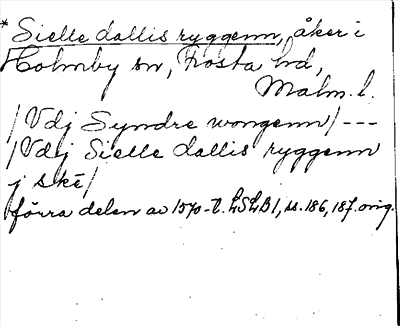 * Sielle dallis ryggenn, åker i
Holmby sn, Frosta hd,
Malm. l.
/Vdj Syndre wongenn/ ---
/Vdj Sielle dallis ryggenn
j skē/
förra delen av 1570-t. LSLB 1, ss. 186, 187. orig.